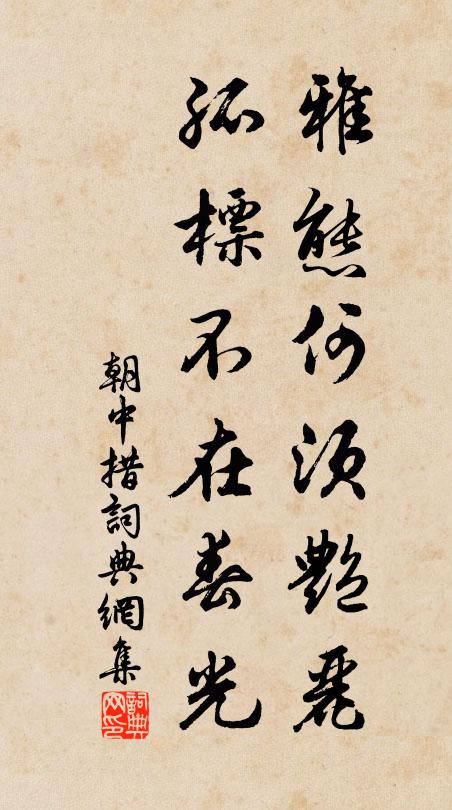 雅態何須艷麗
孤標不在春光
朝中措詞典網集
詞典
网印